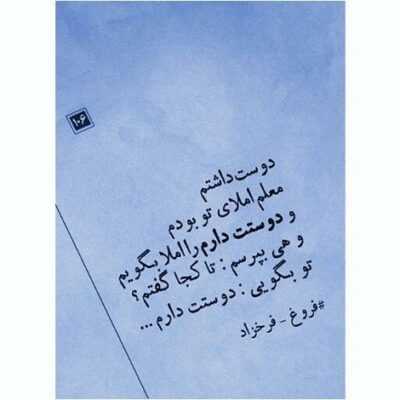 ۱۰۶
دوست داشتم
معلم املای تو بودم
و دوستت دارم را املا بگویم
و هی بپرسم : تا کجا گفتم؟
تو بگویی : دوستت دارم ...
#فروغ - فرخزاد